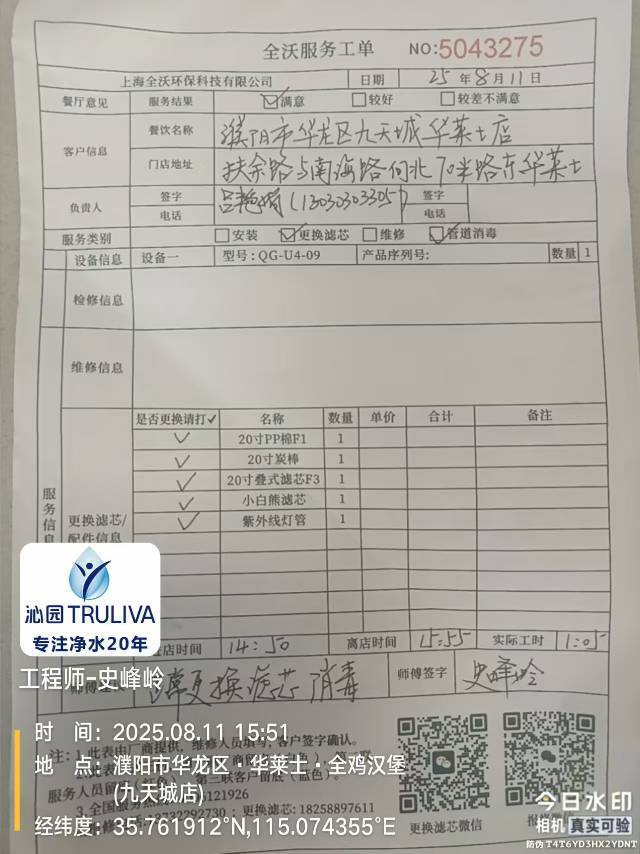 全沃服务工单 NO:5043275
上海全沃环保科技有限公司 日期 25年8月11日
餐厅意见 服务结果 满意 较好 较差不满意
客户信息 餐饮名称 濮阳市华龙区九天城华莱士店
门店地址 扶余路与南海路向北70米路东华莱士
负责人 签字 签字
电话 (13030303305) 电话
服务类别 安装 更换滤芯 维修 管道消毒
设备信息 设备一 型号:QG-U4-09 产品序列号: 数量 1
检修信息
维修信息
服务信息
更换滤芯/配件信息
是否更换请打✓ 名称 数量 单价 合计 备注
✓ 20寸PP棉F1 1
✓ 20寸炭棒 1
✓ 20寸叠式滤芯F3 1
✓ 小白熊滤芯 1
✓ 紫外线灯管 1
进店时间 14:50 离店时间 15:55 实际工时 1:05
更换滤芯 消毒 师傅签字 史峰岭
沁园TRULIVA
专注净水20年
工程师-史峰岭
时 间: 2025.08.11 15:51
地 点: 濮阳市华龙区·华莱士·全鸡汉堡
(九天城店)
经纬度: 35.761912°N,115.074355°E
注: 1.此表由厂商提供,维修人员填写,客户签字确认。
服务人员留
第三联客户留底(蓝色)。
3.全国服务热
更换滤芯: 18258897611
更换滤芯微信
今日水印
相机 真实可验
防伪 T4T6YD3HX2YDNT